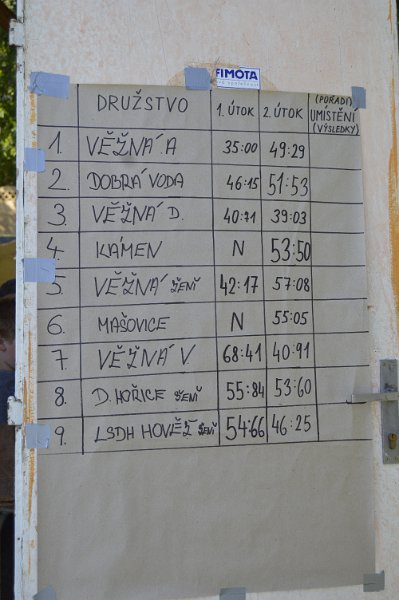 FIMOTA
DRUŽSTVO 1. ÚTOK 2. ÚTOK (POŘADÍ) UMÍSTĚNÍ (VÝSLEDKY)
1. VĚŽNÁ A 35:00 49:29
2. DOBRÁ VODA 46:15 51:53
3. VĚŽNÁ D. 40:71 39:03
4. KÁMEN N 53:50
5. VĚŽNÁ ŽENY 42:17 57:08
6. MAŠOVICE N 55:05
7. VĚŽNÁ V 68:41 40:91
8. D. HOŘICE ŽENY 55:84 53:60
9. LSDH HOVĚZÍ ŽENY 54:66 46:25